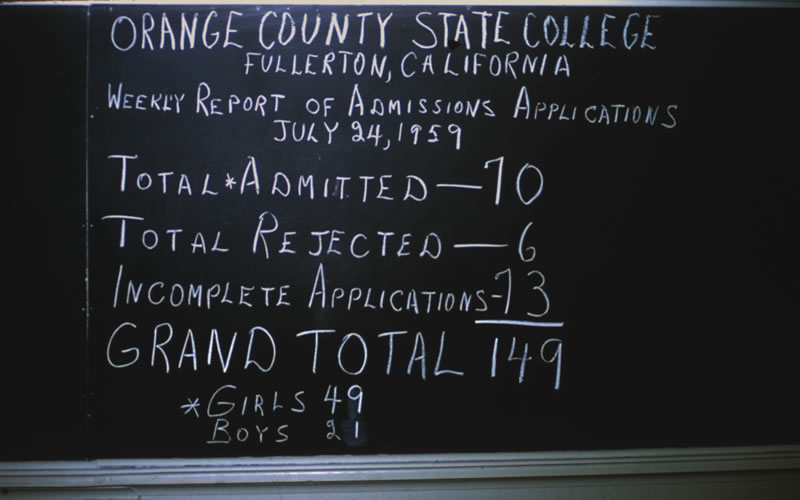 ORANGE COUNTY STATE COLLEGE
FULLERTON, CALIFORNIA
WEEKLY REPORT OF ADMISSIONS APPLICATIONS
JULY 24, 1959
TOTAL *ADMITTED — 70
TOTAL REJECTED — 6
INCOMPLETE APPLICATIONS - 73
GRAND TOTAL 149
*GIRLS 49
BOYS 21